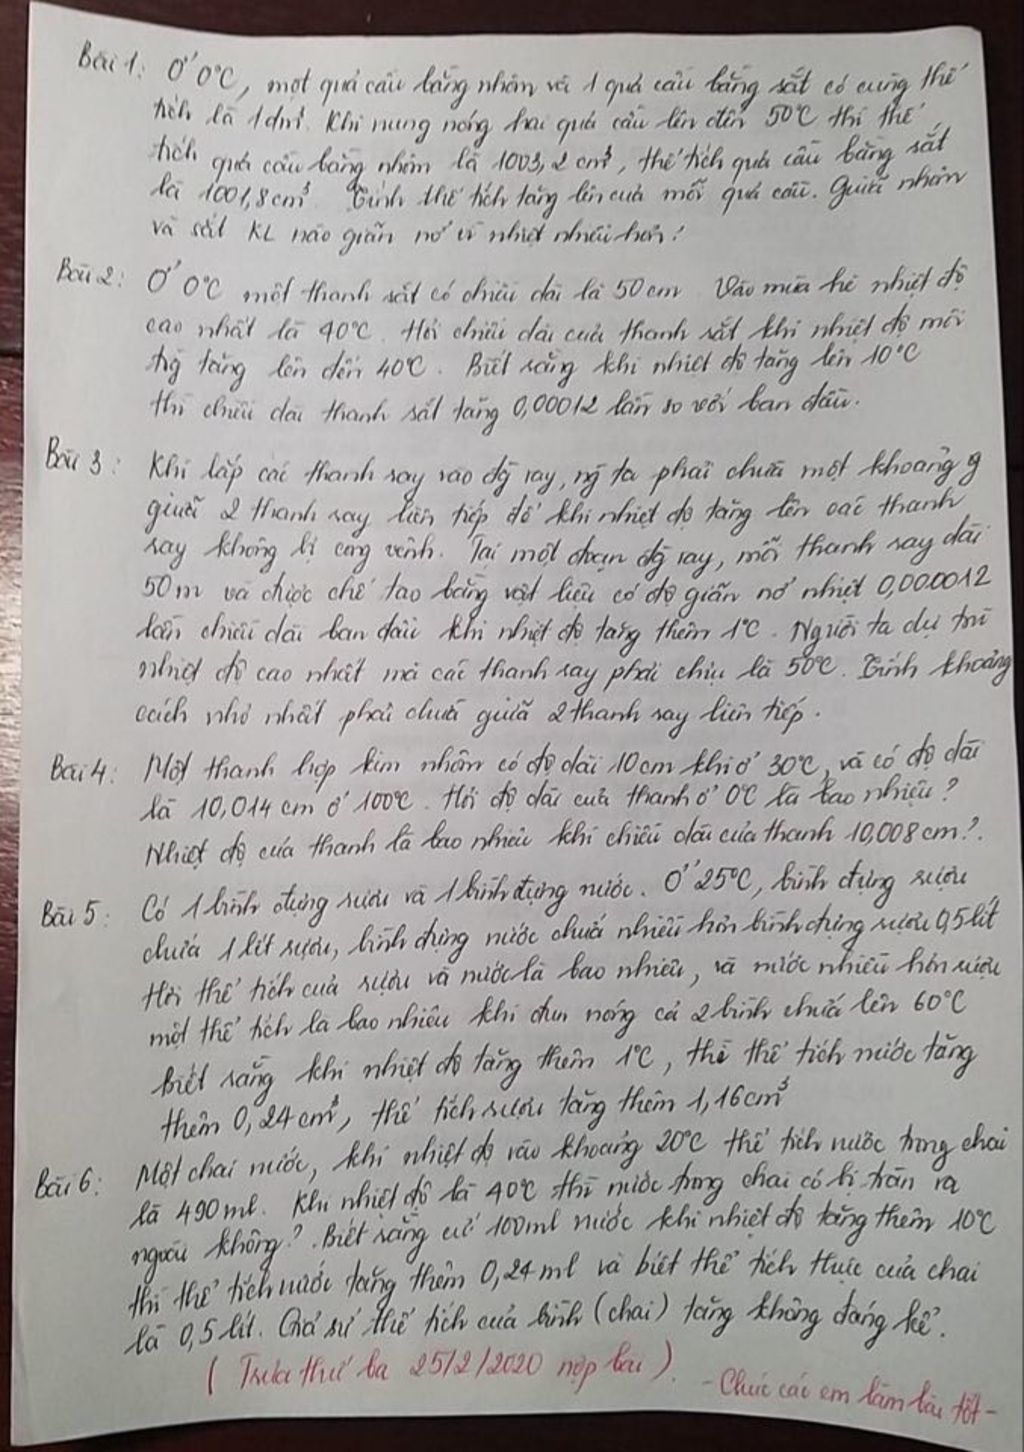 Bài 1: Ở 0°C, một quả cầu bằng nhôm và 1 quả cầu bằng sắt có cùng thể
tích là 1dm³. Khi nung nóng hai quả cầu lên đến 50°C thì thể
tích quả cầu bằng nhôm là 1003,2 cm³, thể tích quả cầu bằng sắt
là 1001,8cm³. Tính thể tích tăng lên của mỗi quả cầu. Giữa nhôm
và sắt KL nào giãn nở vì nhiệt nhiều hơn?
Bài 2: Ở 0°C một thanh sắt có chiều dài là 50cm. Vào mùa hè nhiệt độ
cao nhất là 40°C. Hỏi chiều dài của thanh sắt khi nhiệt độ môi
trg tăng lên đến 40°C. Biết rằng khi nhiệt độ tăng lên 10°C
thì chiều dài thanh sắt tăng 0,00012 lần so với ban đầu.
Bài 3: Khi lắp các thanh ray vào đg ray, ng ta phải chừa một khoảng g
giữa 2 thanh ray liên tiếp để khi nhiệt độ tăng lên các thanh
ray không bị cong vênh. Tại một đoạn đg ray, mỗi thanh ray dài
50m và được chế tạo bằng vật liệu có độ giãn nở nhiệt 0,000012
lần chiều dài ban đầu khi nhiệt độ tăng thêm 1°C. Người ta dự trù
nhiệt độ cao nhất mà các thanh ray phải chịu là 50°C. Tính khoảng
cách nhỏ nhất phải chừa giữa 2 thanh ray liên tiếp.
Bài 4: Một thanh hợp kim nhôm có độ dài 10cm khi ở 30°C, và có độ dài
là 10,014 cm ở 100°C. Hỏi độ dài của thanh ở 0°C là bao nhiêu?
Nhiệt độ của thanh là bao nhiêu khi chiều dài của thanh 10,008cm?.
Bài 5: Có 1 bình đựng rượu và 1 bình đựng nước. Ở 25°C, bình đựng rượu
chứa 1 lít rượu, bình đựng nước chứa nhiều hơn bình đựng rượu 0,5 lít
Hỏi thể tích của rượu và nước là bao nhiêu, và nước nhiều hơn rượu
một thể tích là bao nhiêu khi đun nóng cả 2 bình chứa lên 60°C
Biết rằng khi nhiệt độ tăng thêm 1°C, thì thể tích nước tăng
thêm 0,24cm³, thể tích rượu tăng thêm 1,16cm³
Bài 6: Một chai nước, khi nhiệt độ vào khoảng 20°C thể tích nước trong chai
là 490ml. Khi nhiệt độ là 40°C thì nước trong chai có bị tràn ra
ngoài không? Biết rằng cứ 100ml nước khi nhiệt độ tăng thêm 10°C
thì thể tích nước tăng thêm 0,24ml và biết thể tích thực của chai
là 0,5 lít. Giả sử thể tích của bình (chai) tăng không đáng kể.
( Trưa thứ ba 25/2/2020 nộp bài ).
- Chúc các em làm bài tốt -